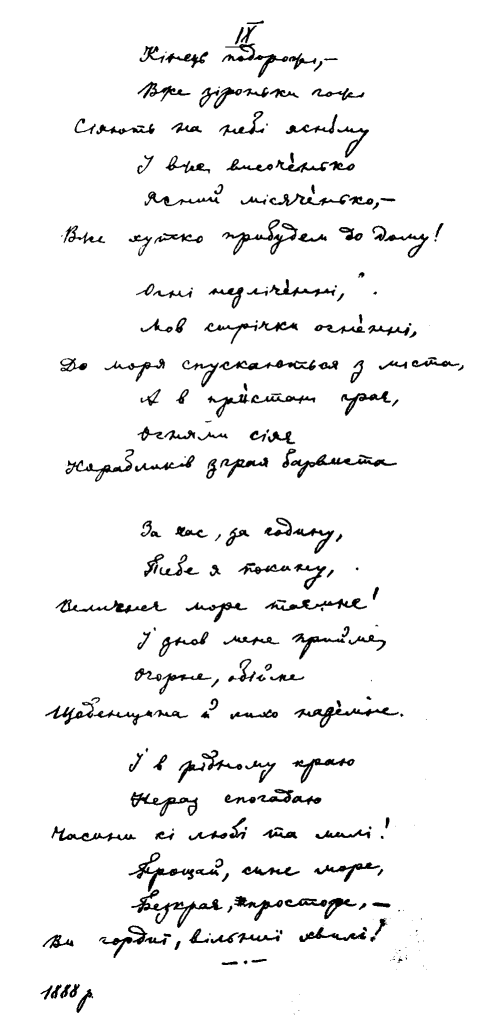 IX
Кінець подорожі,—
Вже зіроньки гожі
Сіяють на небі ясно́му
І вже височе́нько
Ясний місяче́нько,—
Вже хутко прибудем до дому!
Огні незліче́нні,
Мов стрічки огне́нні,
До моря спускаються з міста,
А в при́стані грає,
Огнями сіяє
Корабликів зграя барвиста
За час, за годину,
Тебе я покину,
Величнеє море таємне!
І знов мене прийме,
Огорне, обійме
Щоденщина й лихо надзе́мне.
І в рідному краю
Не раз спогадаю
Часини сі любі та милі!
Прощай, синє море,
Безкрає, просторе,—
Ви гордиї, вільниї хвилі!
1888 р.